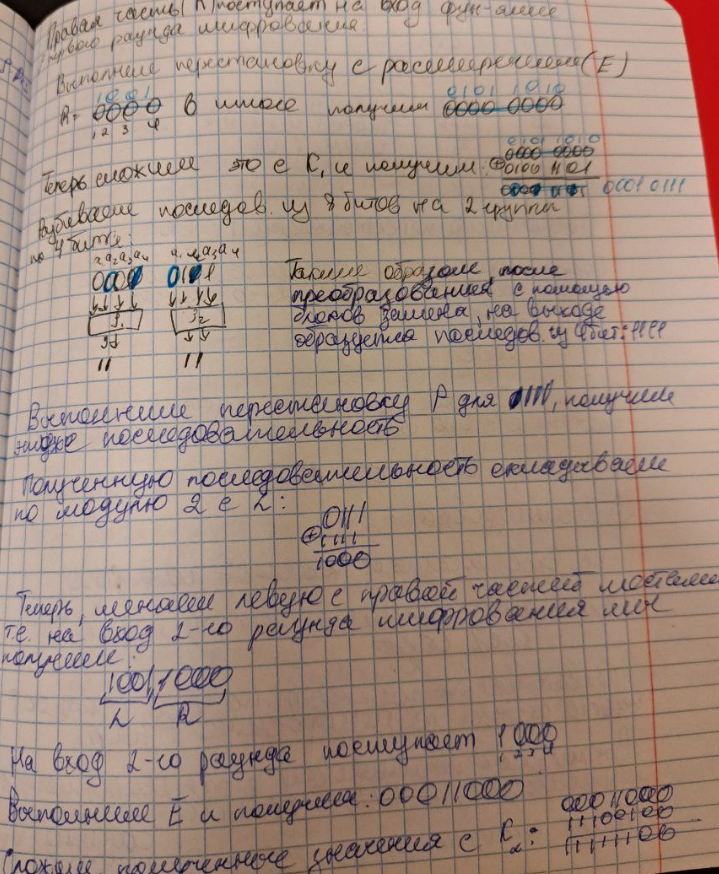 Правая часть (R) поступает на вход фун-ции
первого раунда шифрования.
Выполним перестановку с расширением (E)
1001 0101 1010
R = 0000 в итоге получим 0000 0000
1 2 3 4
0101 1010
Теперь сложим это с K, и получим: 0000 0000
⊕ 0100 1101
0001 0111
Разбиваем последов. из 8 битов на 2 группы
по 4 бита:
a₁a₂a₃a₄ a₁a₂a₃a₄
Таким образом, после
преобразования с помощью
блоков замена, на выходе
образуется последов. из 4 бит: 1111
11 11
Выполним перестановку P для 1111, получим
последовательность
Полученную последовательность складываем
по модулю 2 с L:
0111
⊕ 1111
1000
Теперь, меняем левую с правой частей местами
т.е. на вход 2-го раунда шифрования мы
получим:
1001 1000
L R
На вход 2-го раунда поступает 1000
1 2 3 4
Выполним E и получим: 00011000
00011000
11100100
11111100
Сложим полученные значения с K₂: